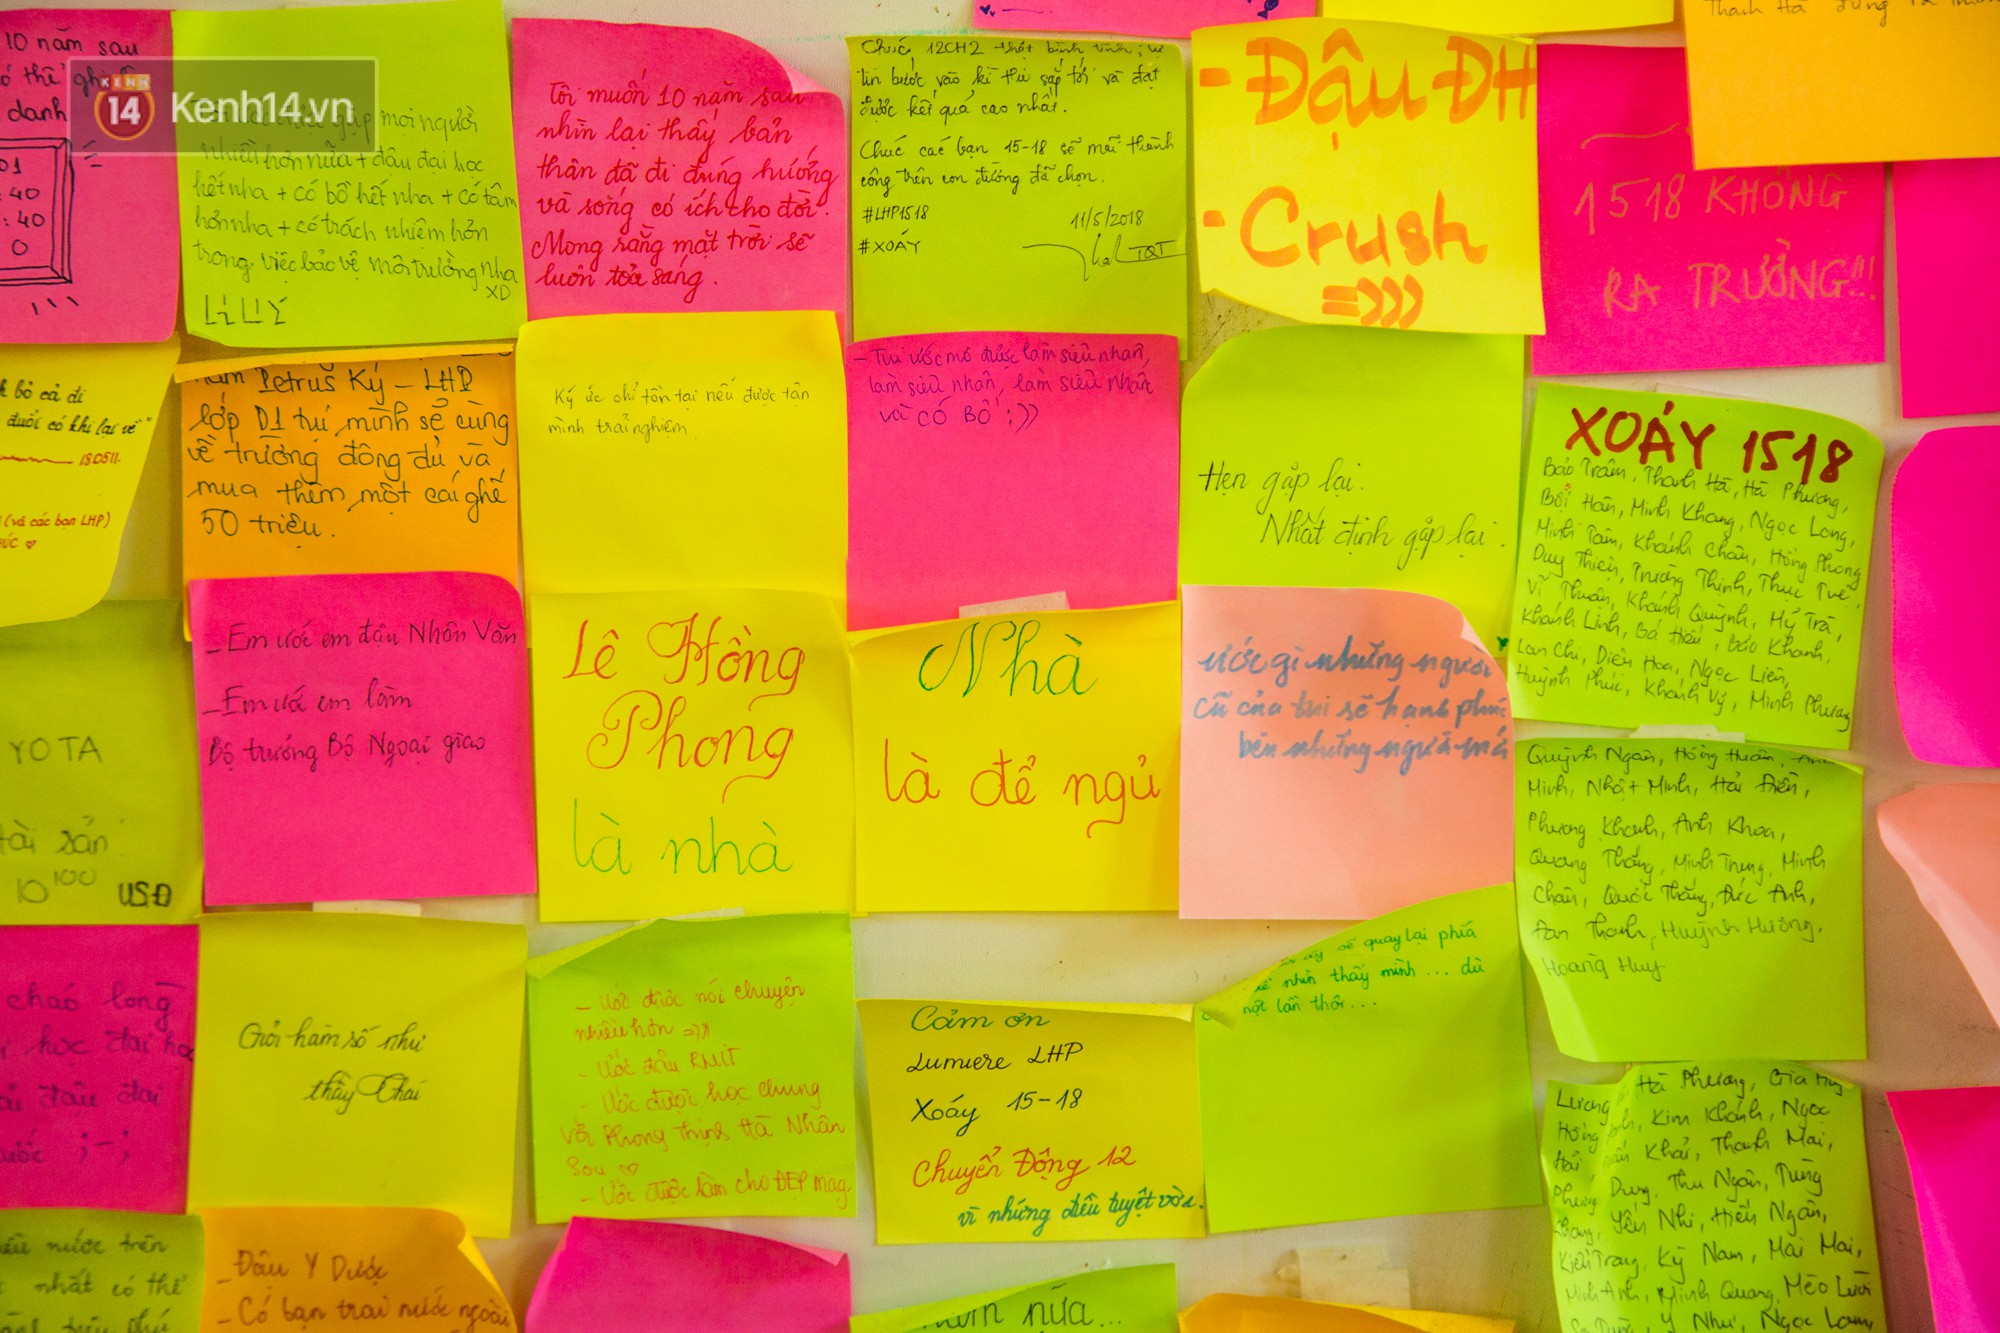 10 năm sau
danh
14 Kenh14.vn
gặp mọi người
nhiều hơn nữa + đậu đại học
hết nha + có bồ hết nha + có tâm
hơn nha + có trách nhiệm hơn
trong việc bảo vệ môi trường nha
XD
LILLY
Tôi muốn 10 năm sau
nhìn lại thấy bản
thân đã đi đúng hướng
và sống có ích cho đời.
Mong rằng mặt trời sẽ
luôn toả sáng.
Chúc 12CH2 thật bình tĩnh, tự
tin bước vào kì thi sắp tới và đạt
được kết quả cao nhất.
Chúc các bạn 15-18 sẽ mãi thành
công trên con đường đã chọn.
#LHP1518
11/5/2018
#XOÁY
TQT
- Đậu ĐH
- Crush
=)))
1518 KHÔNG
RA TRƯỜNG!!!
bỏ cả đi
đuổi có khi lại về"
(và các bạn LHP)
Petrus Ký - LHP
lớp D1 tụi mình sẽ cùng
về trường đông đủ và
mua thêm một cái ghế
50 triệu.
Ký ức chỉ tồn tại nếu được tận
mình trải nghiệm
- Tui ước mơ được làm siêu nhân,
làm siêu nhân, làm siêu nhân
và có BỒ :))
Hẹn gặp lại.
Nhất định gặp lại.
XOÁY 1518
Bảo Trâm, Thanh Hà, Hà Phương,
Bội Hân, Minh Khang, Ngọc Long,
Minh Tâm, Khánh Châu, Hồng Phong
Duy Thiện, Trường Thịnh, Thục Tuệ,
Vĩ Thuân, Khánh Quỳnh, Mỹ Trà,
Khánh Linh, Bá Hiếu, Bảo Khanh,
Lan Chi, Diên Hoa, Ngọc Liên,
Huỳnh Phúc, Khánh Vy, Minh Phương
- Em ước em đậu Nhân Văn
- Em ước em làm
Bộ trưởng Bộ Ngoại giao
Lê Hồng
Phong
là nhà
Nhà
là để ngủ
ước gì những người
cũ của tui sẽ hạnh phúc
bên những người mới
YOTA
tài sản
10^100 USD
Quỳnh Ngân, Hồng Huân,
Minh, Nhật Minh, Hải Điền,
Phương Khanh, Anh Khoa,
Quang Thắng, Minh Trung, Minh
Châu, Quốc Thắng, Đức Anh,
Đan Thanh, Huỳnh Hương,
Hoàng Huy
Giỏi hàm số như
thầy Thai
- Ước được nói chuyện
nhiều hơn =))
- Ước đậu RMIT
- Ước được học chung
với Phong Thịnh Hà Nhân
- Ước được làm cho ĐẸP mag
Cảm ơn
Lumiere LHP
Xoáy 15-18
Chuyển Động 12
vì những điều tuyệt vời.
sẽ quay lại phía
nhìn thấy mình... dù
một lần thôi...
Hà Phương, Gia Huy
Kim Khánh, Ngọc
Khải, Thanh Mai,
Dung, Thu Ngân, Tùng
Yến Nhi, Hiếu Ngân,
Kiều Trang, Kỳ Nam, Mai Mai,
Minh Anh, Minh Quang, Mèo Lười
Ý Như, Ngọc Lam,
nước trên
nhất có thể
- Đậu Y Dược
- Có bạn trai nước ngoài
nữa...